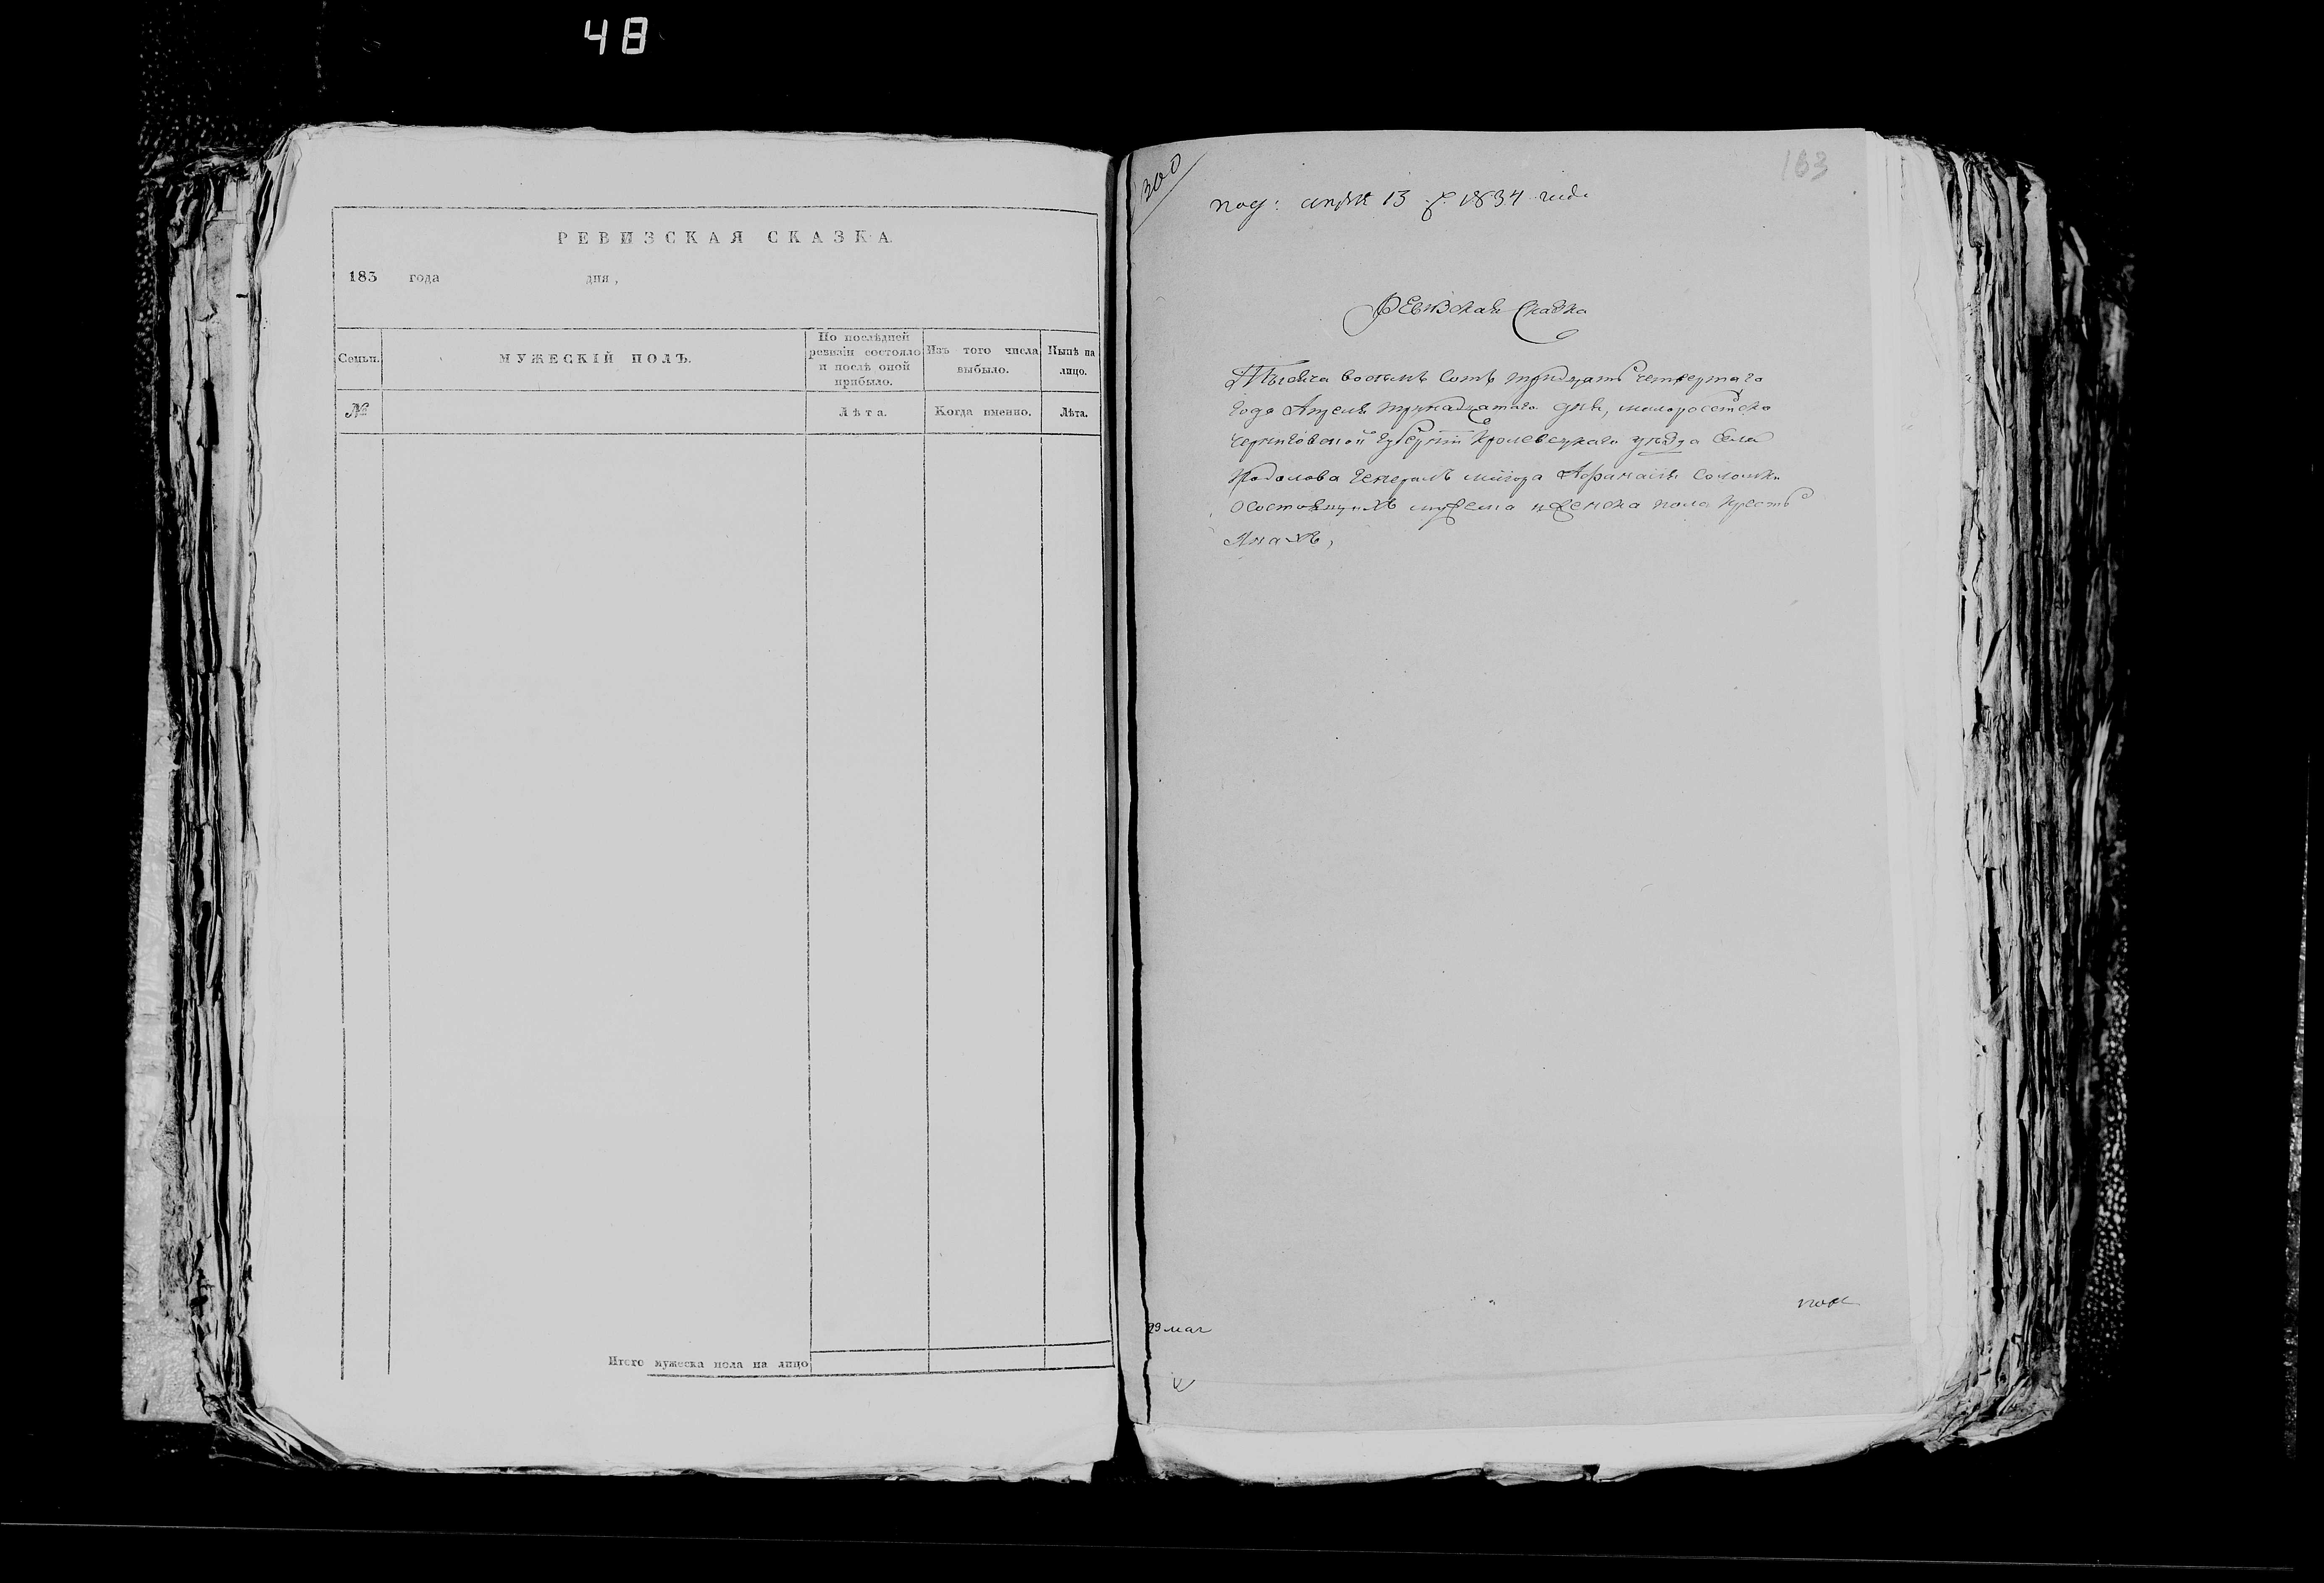 48
РЕВИЗСКАЯ СКАЗКА.
183 года дня,
Семьи.
МУЖЕСКІЙ ПОЛЪ.
По послѣдней ревизіи состояло и послѣ оной прибыло.
Изъ того числа выбыло.
Нынѣ на лицо.
№
Лѣта.
Когда именно.
Лѣта.
Итого мужеска пола на лицо
300
163
под: апрѣл 13 1834 года
Ревизская Сказка
Тысяча восемь сотъ тридцать четвертаго
года Апреля тринадцатаго дня, малоросійско
Черниговской губерніи Кролевецкаго уѣзда села
генералъ маіора Афанасія Соломки
о состоящихъ мужеска и женска пола кресть
янахъ,